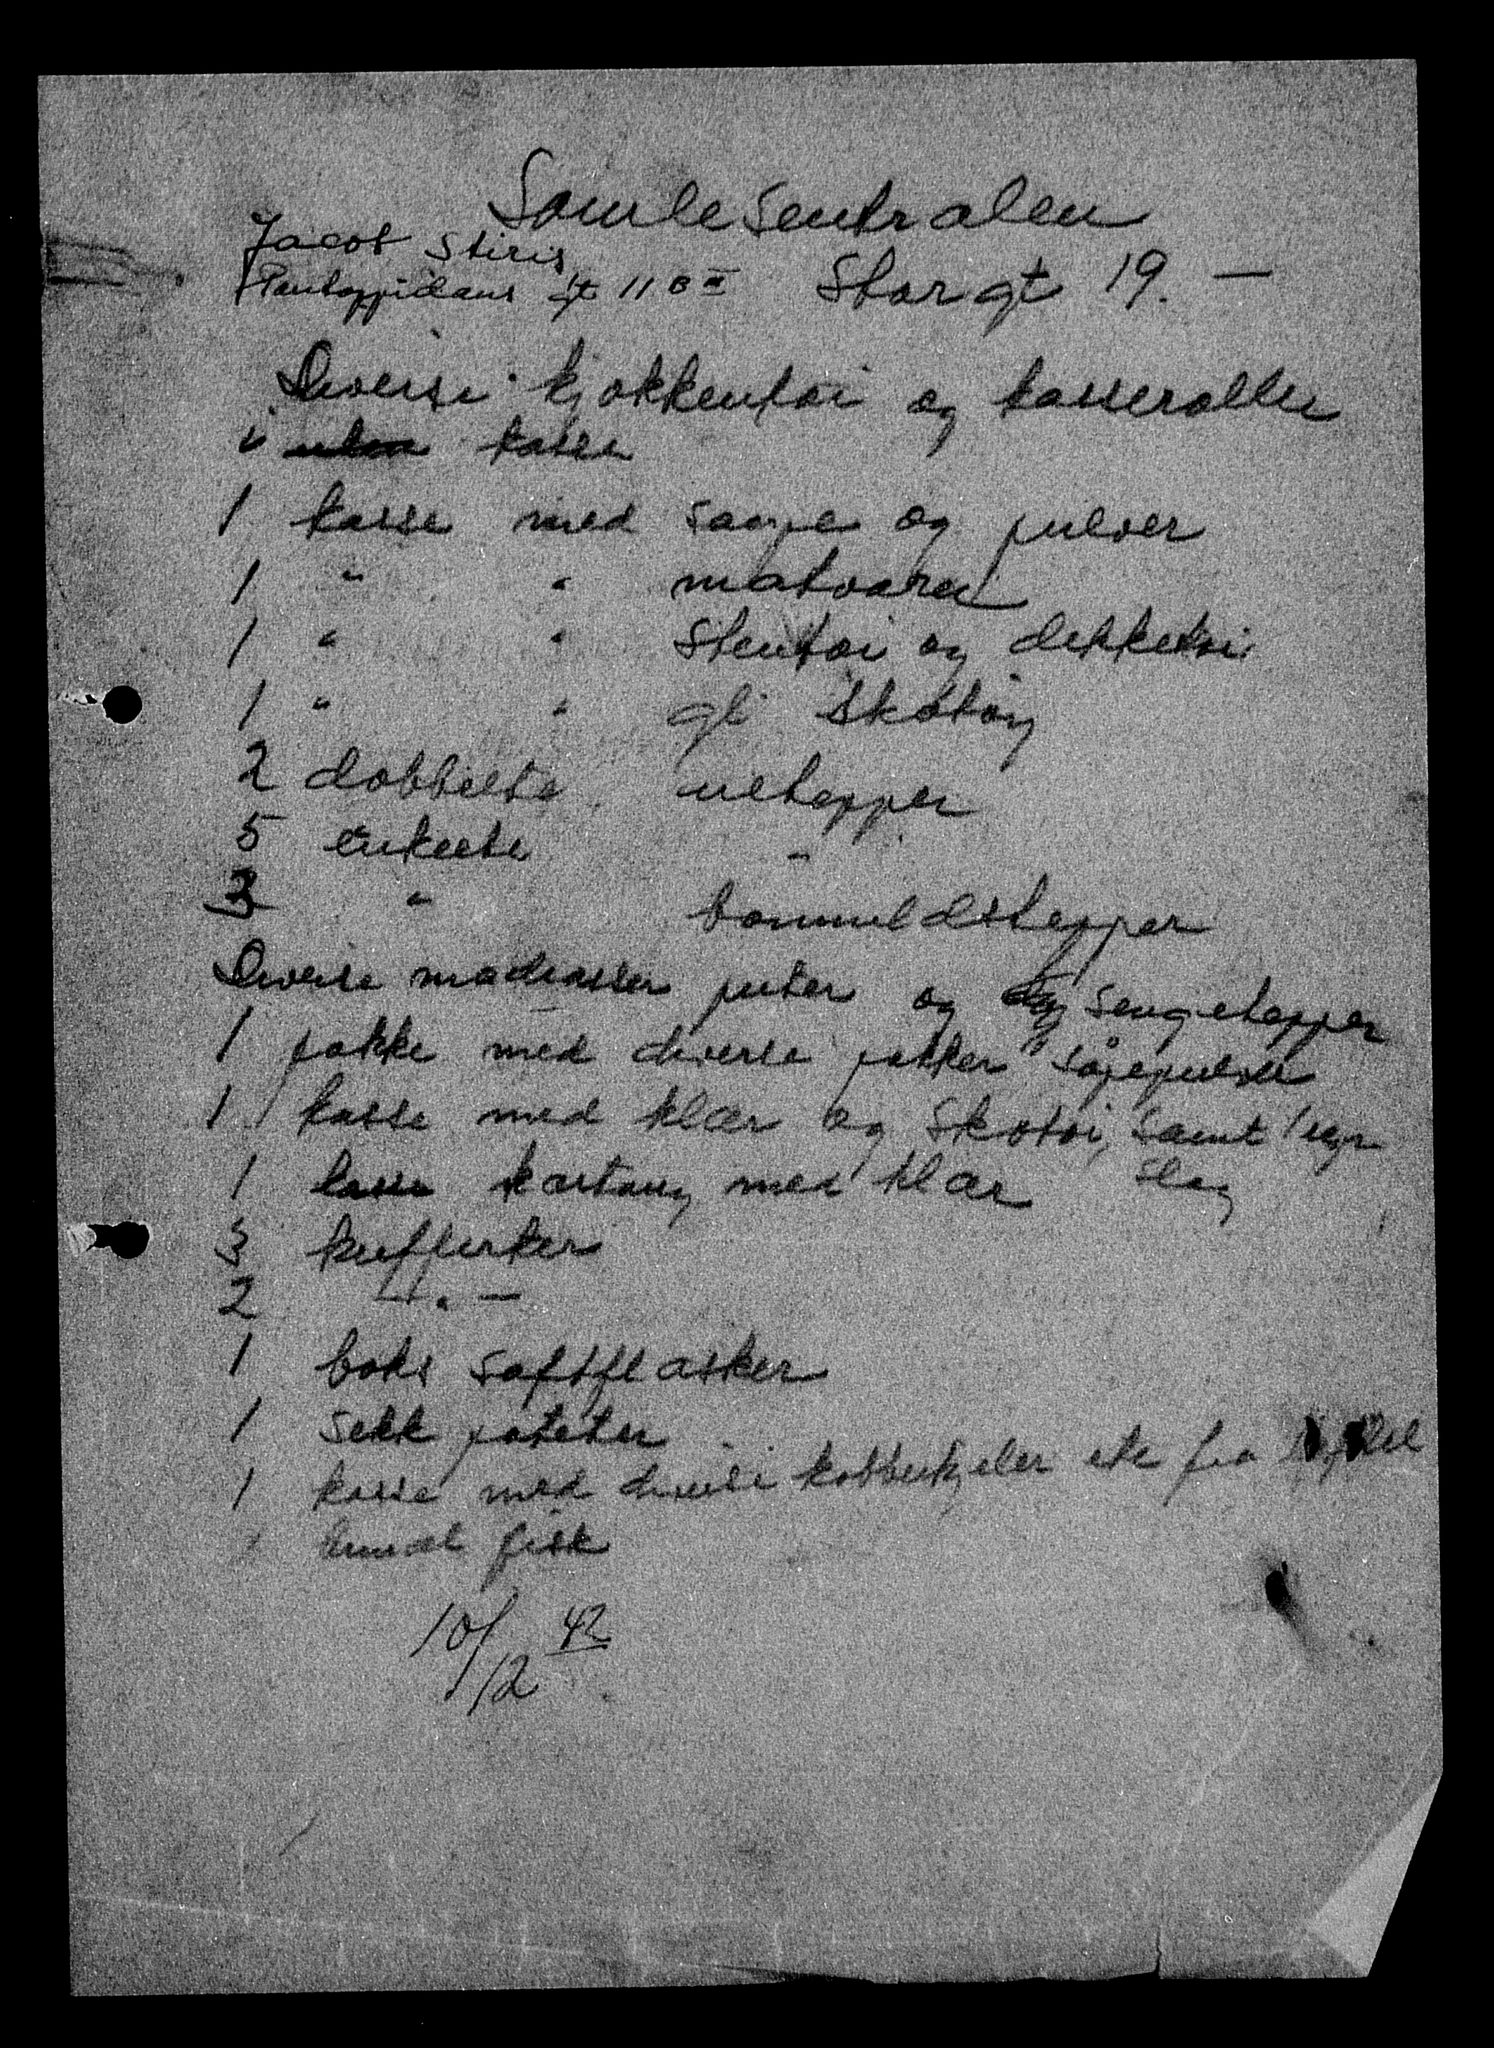 Samlesentralen
Jacob Stiris
Pontoppidans gt 11 B III Storgt 19. —
Diverse kjøkkentøi og kasseroller
i kasse
1 kasse med saape og pulver
1 " " matvarer
1 " " Stentøi og dekketøi
1 " " gl. Skotøy
2 dobbelte ultepper
5 enkelte "
3 " bomuldstepper
Diverse madrasser puter og sengetepper
1 pakke med diverse pakker såpepulver
1 kasse med klær og skotøi, samt 1 regn
slag
1 kartong med klær
3 kufferter
2 — " —
1 boks saftflasker
1 sekk poteter
1 kasse med diverse kobberkjeler etc fra
1 bundt fisk
10/12 42